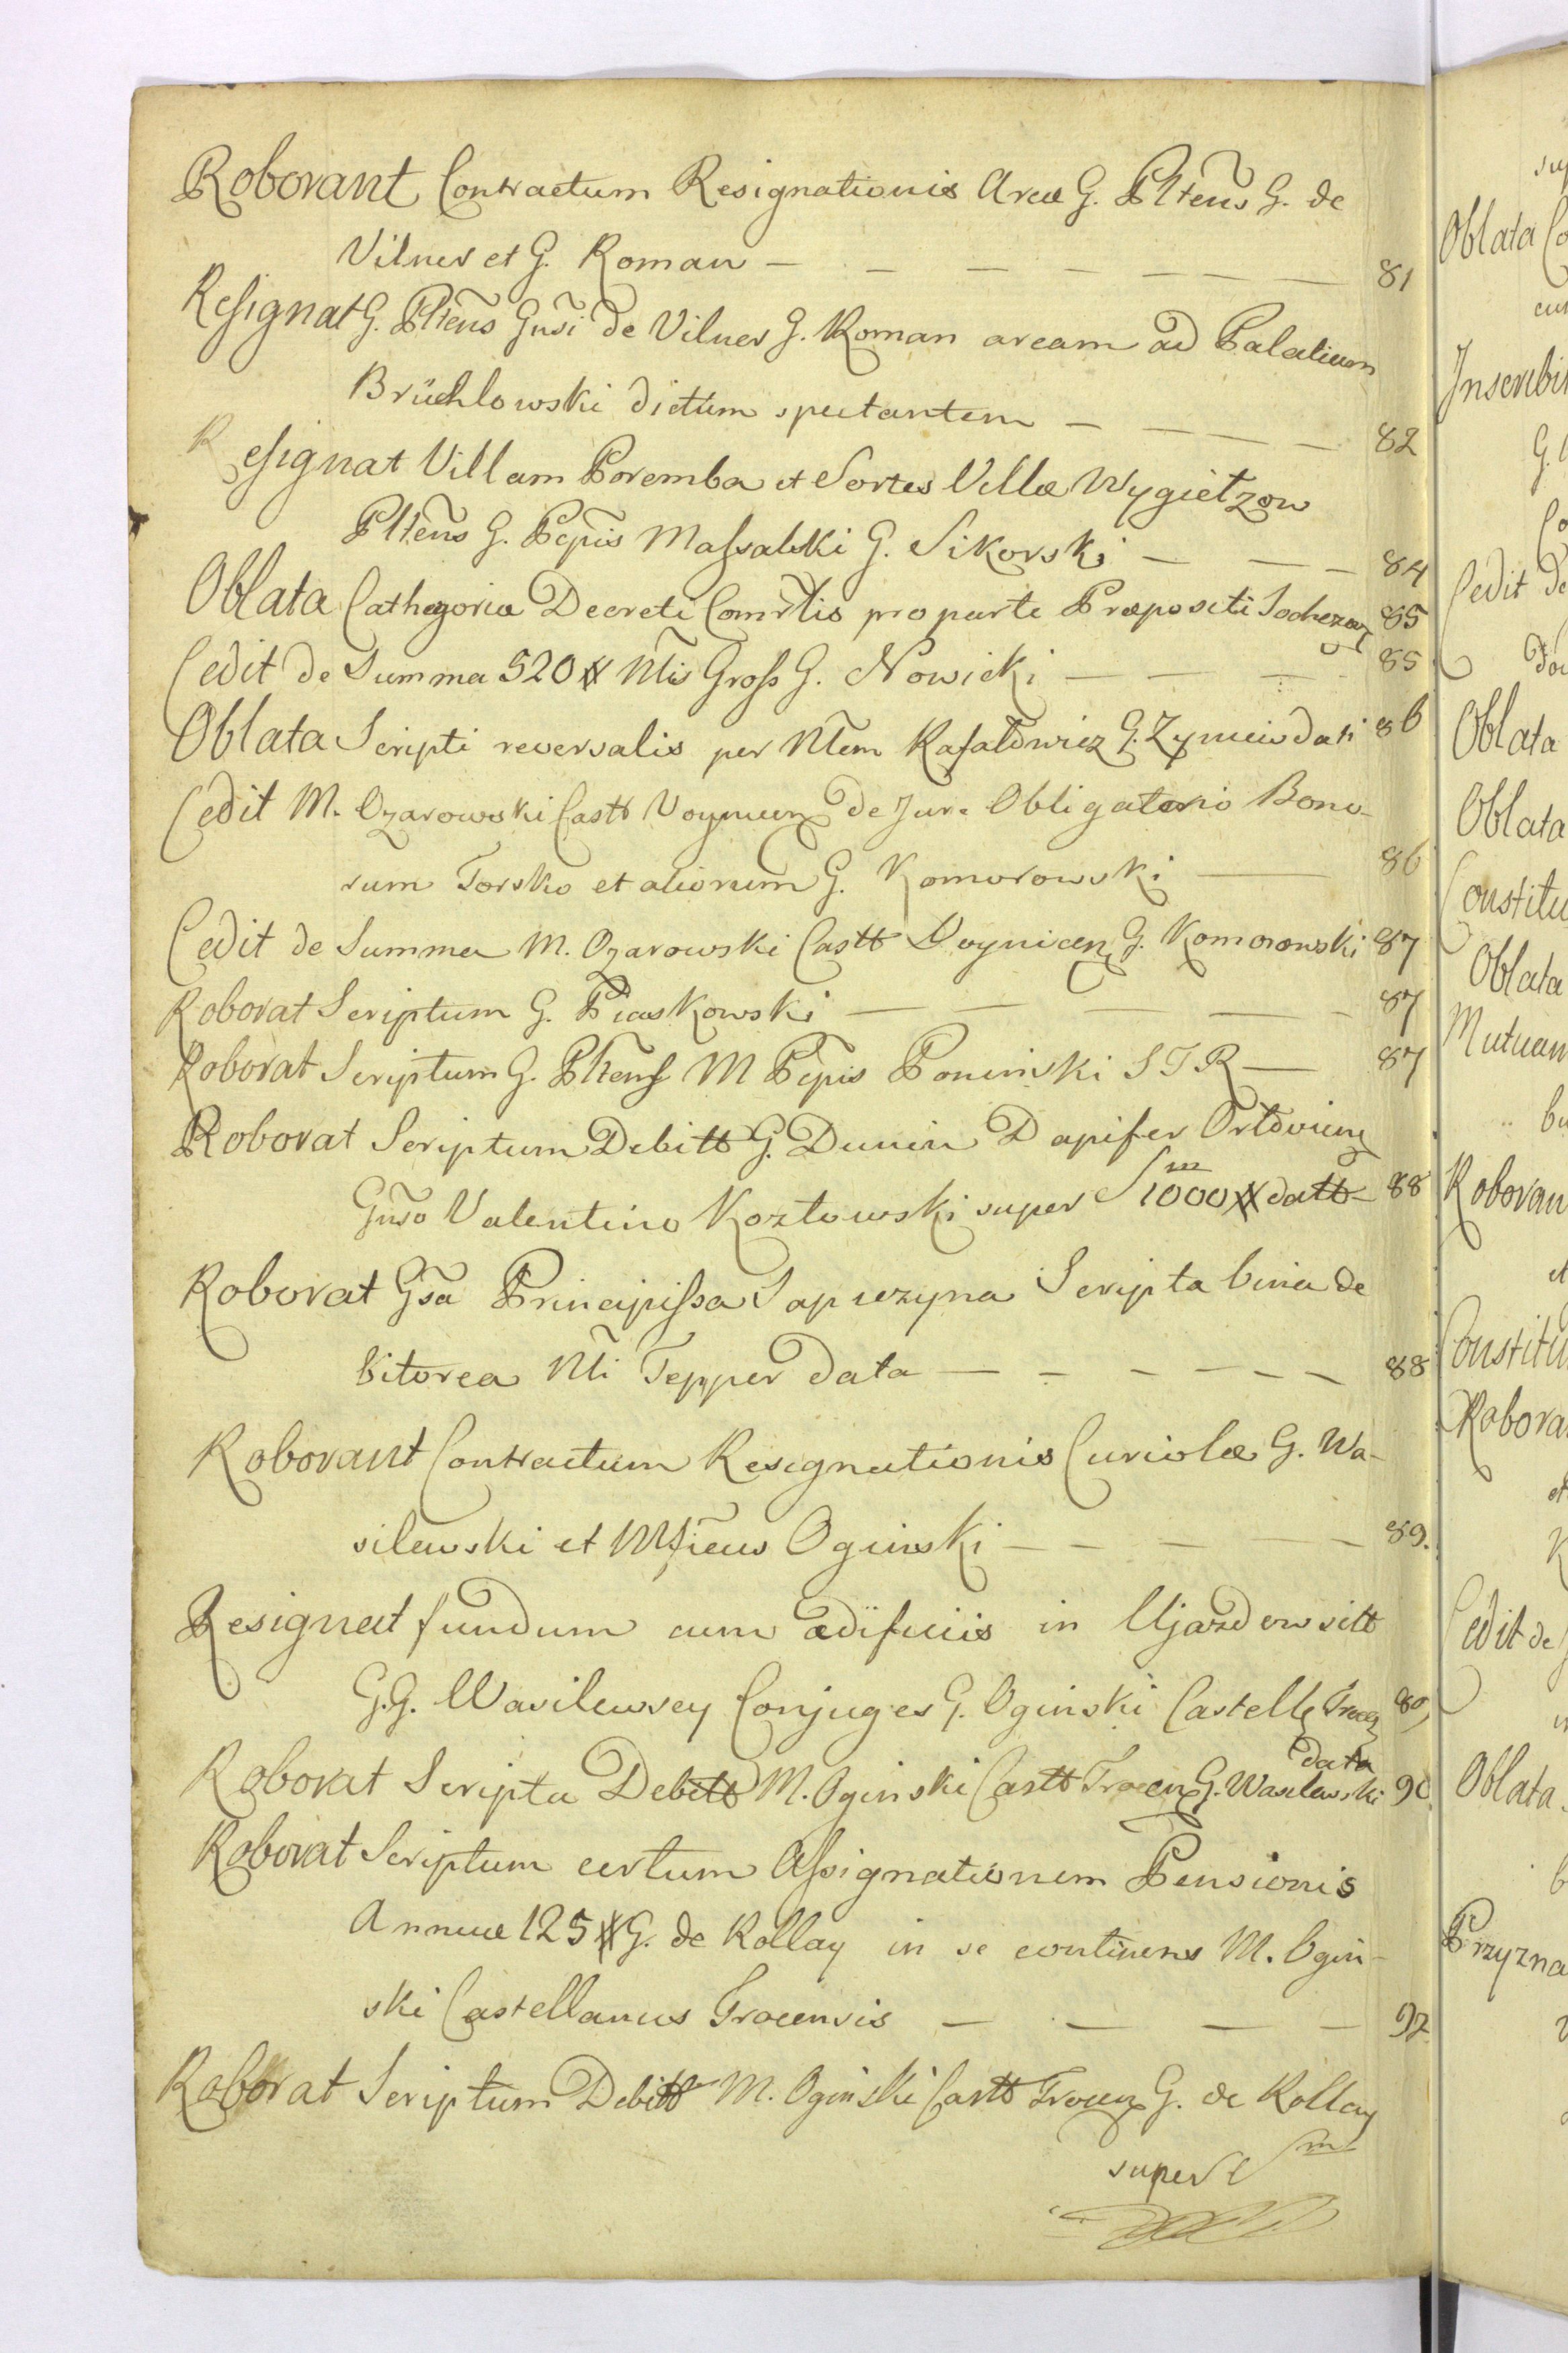 Roborant Contractum Resignationis Areæ G. Pltens G. de
Vilner et G. Roman — — — — — — — 81
Resignat G. Pltens Gnsi de Vilner G. Roman aream ad Palatium
Brüchlowski dictum spectantem — — — — 82
Resignat Villam Poremba et Sortes Villæ Wygietzow
Pltens G. Pcpis Massalski G. Sikorski — — — 84
Oblata Cathegoriæ Decreti Comrtis pro parte Præpositi Sochezow 85
Cedit de Summa 520 # Ntis Gross G. Nowicki — — — 85
Oblata Scripti reversalis per Ntem Rafałowicz G. dati 86
Cedit M. Ozarowski Castt Voynicen de Jure Obligatorio Bono-
rum Torsko et aliorum G. Komorowski — 86
Cedit de Summa M. Ozarowski Castt Voynicen G. Komorowski 87
Roborat Scriptum G. Piaskowski — — — — — 87
Roborat Scriptum G. Pltens M Pcpis Poninski S T R — 87
Roborat Scriptum Debitt G. Dunin Dapifer
Gnso Valentino Kozłowski super Sm 1000 # datt — 88
Roborat Gsa Principissa Sapiezyna Scripta bina de
bitorea Nti Tepper data — — — — — — 88
Roborant Contractum Resignationis Curiolæ G. Wa-
silewski et Mficus Oginski — — — — — 89.
Resignat fundum cum ædificiis in Ujazdow sitt
G.G. Wasilewscy Conjuges G. Oginski Castell Trocen 89
data
Roborat Scripta Debitt M. Oginski Castt Trocen G. Wasilewski 90
Roborat Scriptum certum Assignationem Pensionis
Annuæ 125 # G. de Kollay in se continens M. Ogin-
ski Castellanus Trocensis — — — — 92
Roborat Scriptum Debitt M. Oginski Castt Trocen G. de Kollay
super Sm
Oblata
Oblata
Oblata
Oblata
Oblata